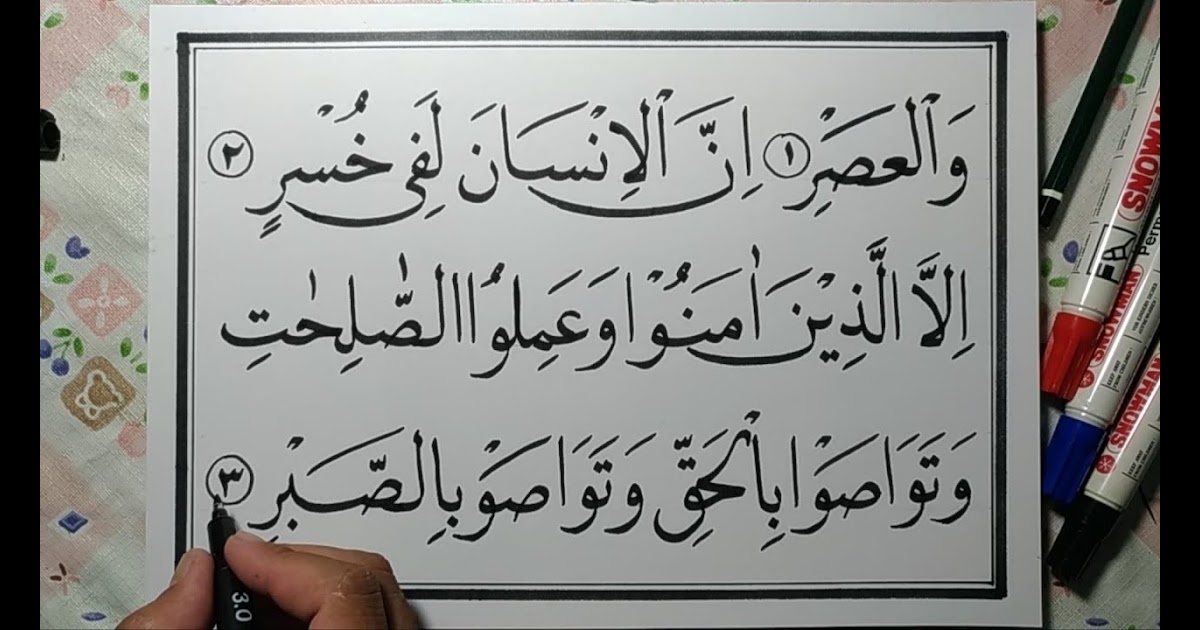 وَٱلْعَصْرِ ١ اِنَّ ٱلْاِنْسَانَ لَفِى خُسْرٍ ٢
اِلاَّ الَّذِيْنَ اٰمَنُوْا وَعَمِلُوا الصّٰلِحٰتِ
وَتَوَاصَوْا بِالْحَقِّ وَتَوَاصَوْ بِالصَّبْرِ ٣
3.0
SNOWMAN
Perm
SNOWMAN
SNOWMAN